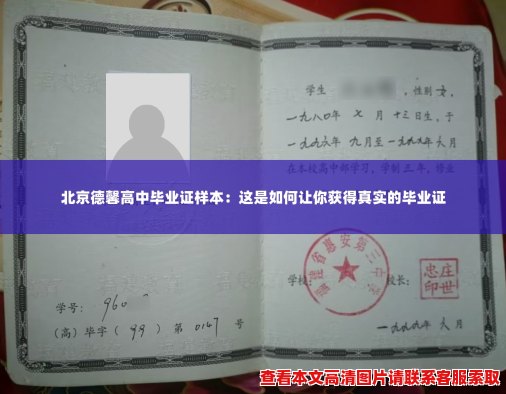 学生
，性别女，
一九八〇年 七 月 十三日生，于
一九九六年 九月至一九九九年六月
在本校高中部学习，学制三年，修业
北京德馨高中毕业证样本：这是如何让你获得真实的毕业证
福建省惠安第三中学
学校：
校长：
庄世忠印
学号： 960
（高）毕字（ 99 ）第 0147 号
一九九九年 六 月
查看本文高清图片请联系客服索取